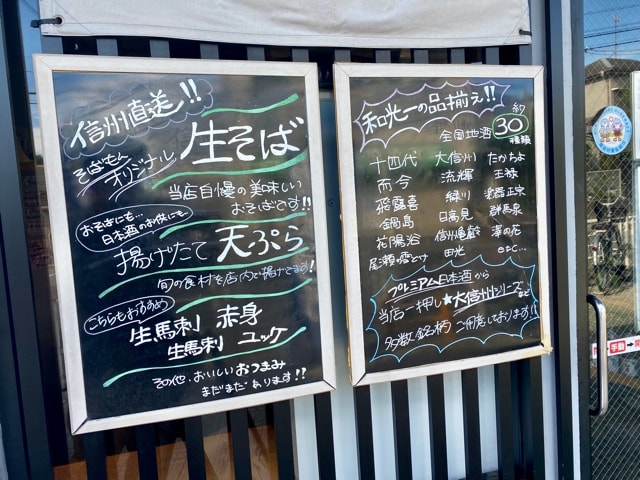 信州直送!!
そばもん
オリジナル
生そば
当店自慢の美味しい
おそばです!!
おそばにも…
日本酒のお供にも
揚げたて 天ぷら
旬の食材を店内で揚げてます!
こちらもおすすめ
生馬刺 赤身
生馬刺 ユッケ
その他、おいしいおつまみ
まだまだあります!!
和光一の品揃え!!
全国地酒 約30種類
十四代 大信州 たかちよ
而今 流輝 王祿
飛露喜 緑川 楽器正宗
鍋島 日高見 群馬泉
花陽浴 信州亀齢 澤の花
尾瀬の雪どけ 田光 etc…
プレミアム日本酒から
当店一押し★大信州シリーズまで
多数銘柄ご用意しております!!
手動